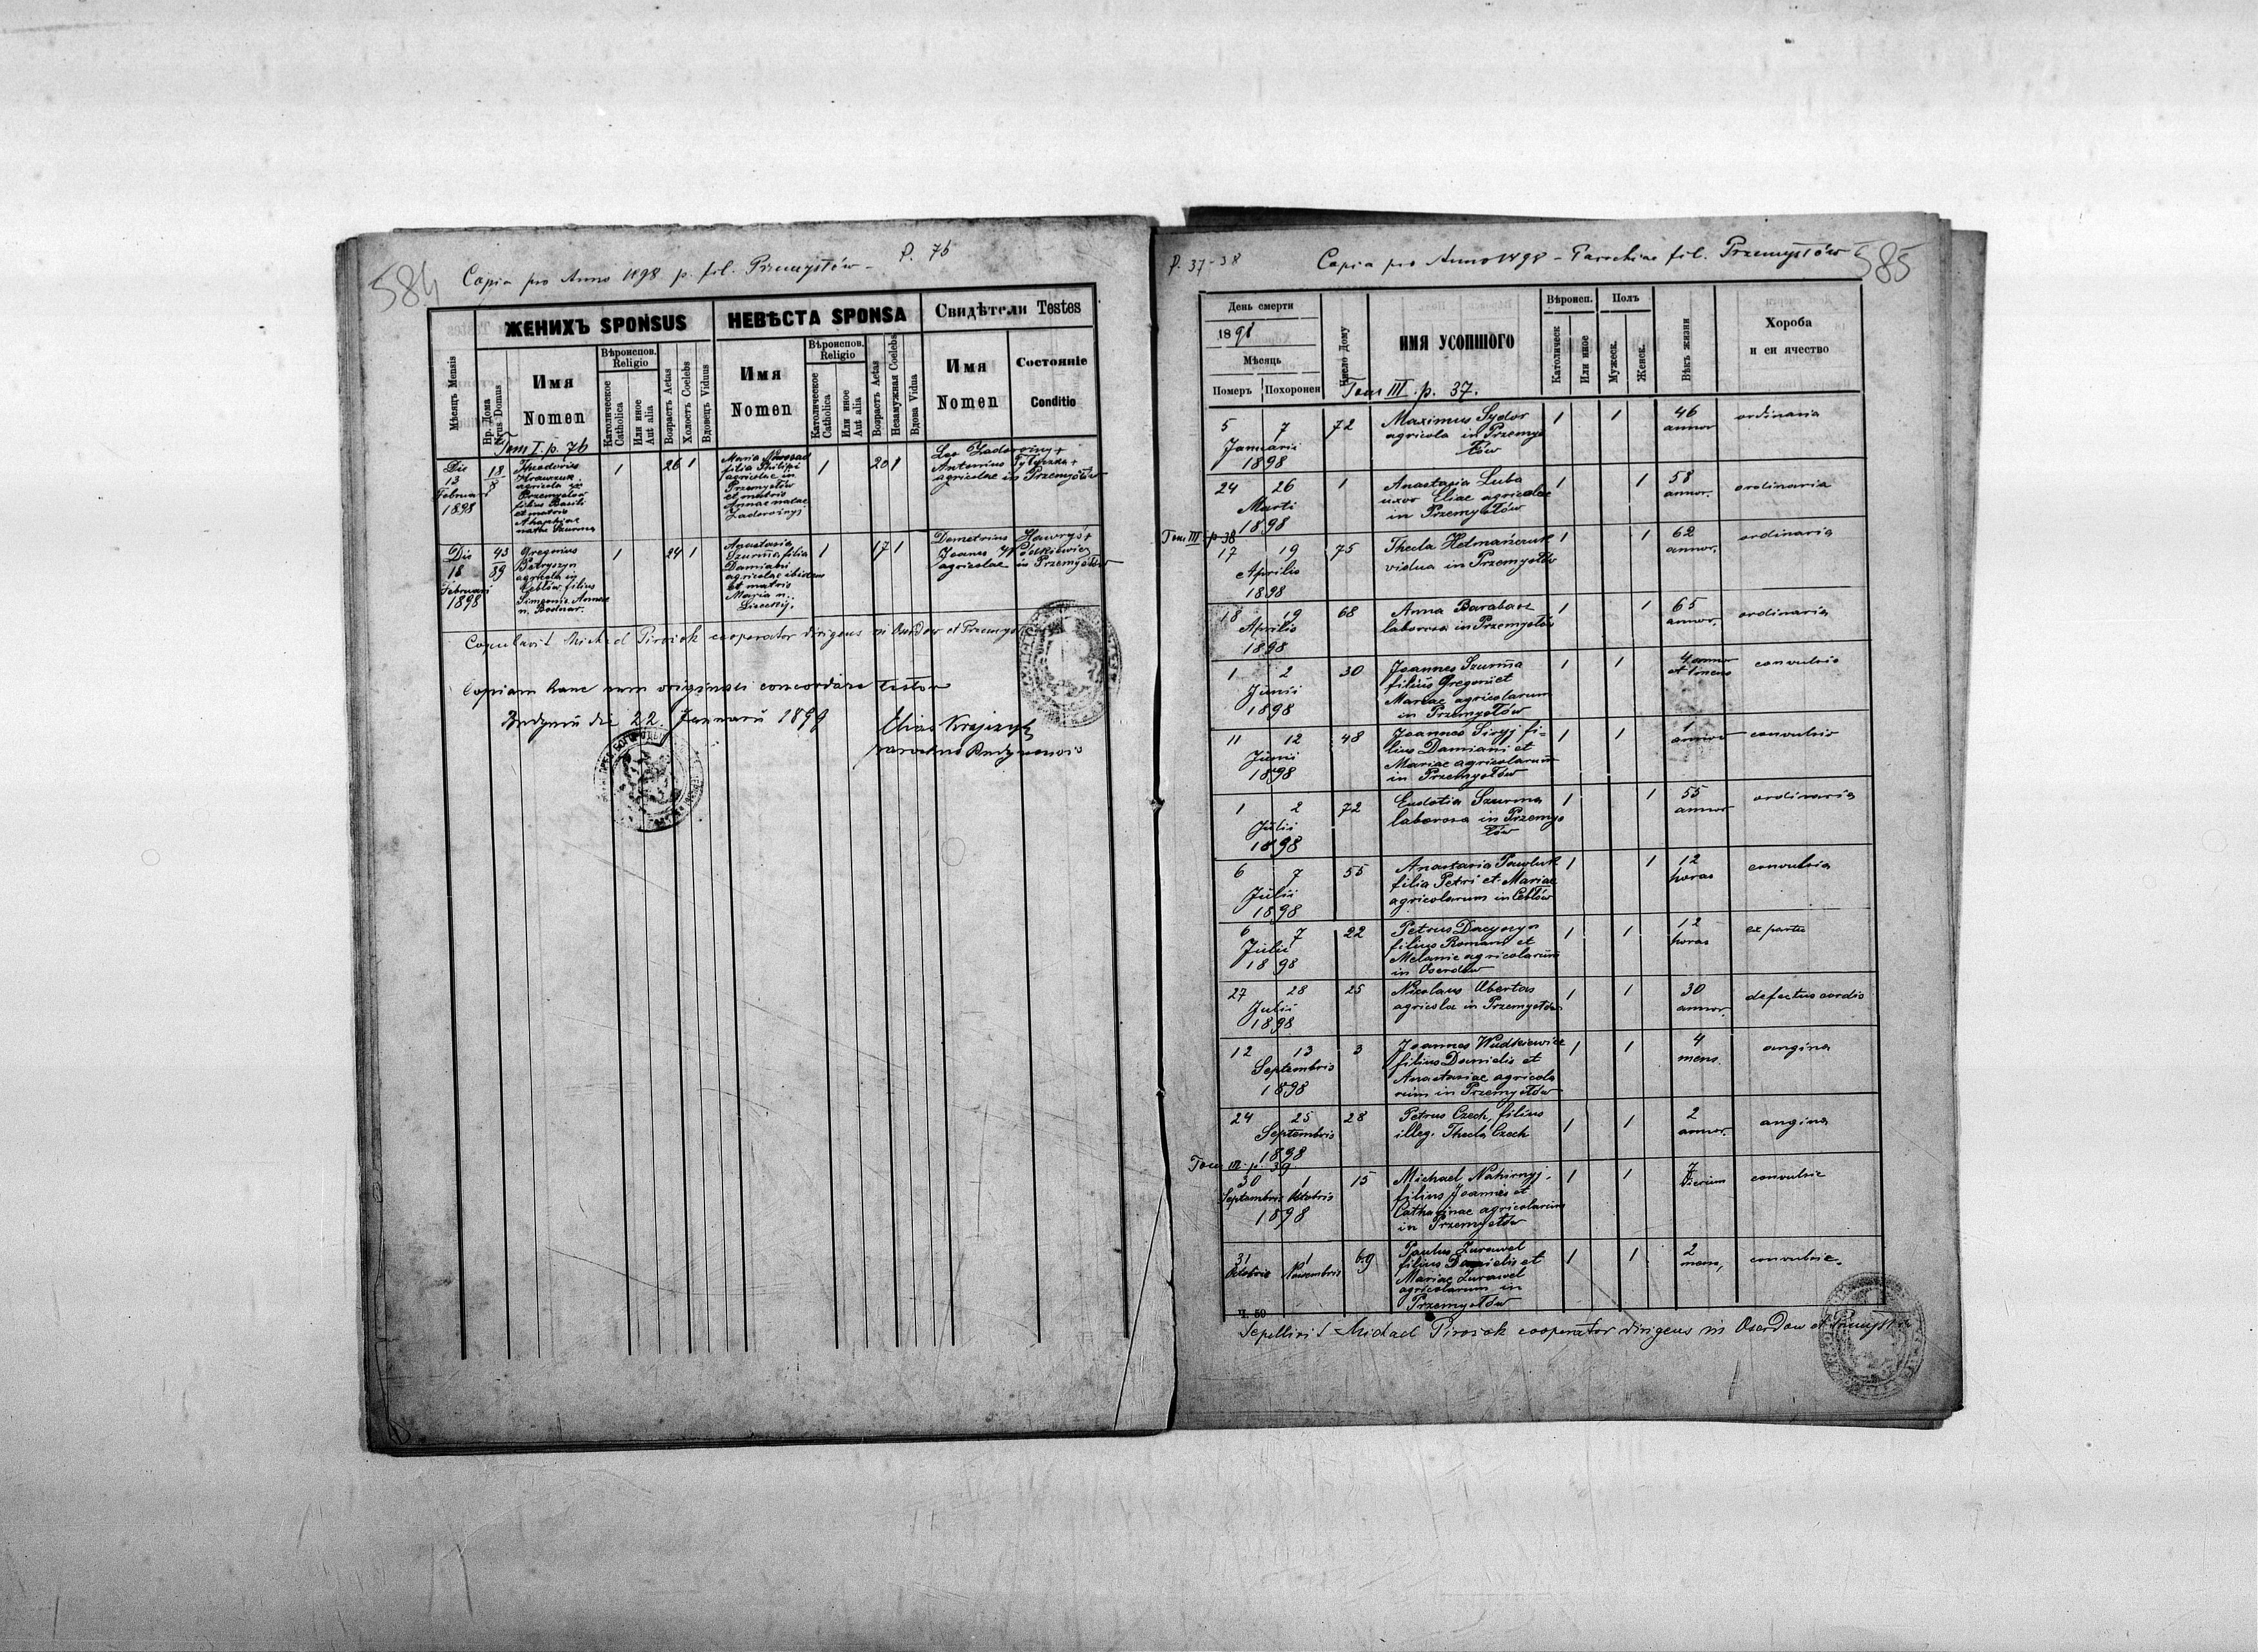 584
Copia pro Anno 1898 p. fil. Przemysłów - P. 76
Мѣсяцъ Mensis
ЖЕНИХЪ SPONSUS
НЕВѢСТА SPONSA
Свидѣтели Testes
Нр. Дома
Nrus Domus
Имя
Nomen
Вѣроиспов
Religio
Католическое
Catholica
Или иное
Aut alia
Возрастъ Aetas
Холостъ Coelebs
Вдовецъ Viduus
Имя
Nomen
Вѣроиспов.
Religio
Католическое
Catholica
Или иное
Aut alia
Возрастъ Aetas
Незамужная Coelebs
Вдова Vidua
Имя
Nomen
Состояніе
Conditio
Tom I. p. 76
Die
13
Februari
1898
18
8
Theodorius
agricola in
Przemysłów
filius Basili
et matris
Ahaphiae
natae Szurma
1
26
1
Maria
filia Philipi
agricolae in
Przemysłów
et matris
Annae natae
Zadoroznyj
1
20
1
Leo Zadorozny +
Antonius Tytuszka +
agricolae in Przemysłów
Die
18
Februari
1898
43
89
Gregorius
Petryszyn
agricola in
Cebłów filius
Simeonis Annae
n. Bodnar.
1
24
1
Anastasia
Szurma filia
Damiani
agricolae ibidem
et matris
Maria n.
1
17
1
Demetrius Hawryś +
Joanes Wódkiewicz
agricolae in Przemysłów
Copulavit Michael Pirożok cooperator dirigens in Oserdow et Przemysłów
Copiam hanc cum originali concordare testor
Budynin die 22. Januarii 1899
Elias Krajczyk
parochus Budynensis
P. 37-38
Copia pro Anno 1898 - Parochiae fil. Przemysłów
585
День смерти
1898
Мѣсяць
Померъ
Похоронен
Число дому
ИМЯ УСОПШОГО
Вѣроисп.
Католическ
Или иное
Полъ
Мужеск.
Женск.
Вѣкъ жизни
Хороба
и еи ячество
Tom III. p. 37.
5 7
Januarii
1898
72
Maximus Sydor
agricola in Przemys
łów
1
1
46
annor
ordinaria
24 26
Marti
1898
1
Anastasia Luba
uxor Eliae agricolae
in Przemysłów
1
1
58
annor.
ordinaria
Tom III p 38
17 19
Aprilis
1898
75
Thecla Hetmańczuk
vidua in Przemysłów
1
1
62
annor.
ordinaria
18 19
Aprilis
1898
68
Anna Barabasz
laborosa in Przemysłów
1
1
65
annor.
ordinaria
1 2
Junii
1898
30
Joannes Szurma
filius Gregorii et
Mariae agricolarum
in Przemysłów
1
1
4 annor
et 1 mens
convulsio
11 12
Junii
1898
48
Joannes Siryj fi-
lius Damiani et
Mariae agricolarum
in Przemysłów
1
1
1
convulsio
1 2
Julii
1898
72
Eudotia Szurma
laborosa in Przemys
łów
1
1
55
annor
ordinaria
6 7
Julii
1898
55
Anastasia Pawluk
filia Petri et Mariae
agricolarum in Cebłów
1
1
12
horas
convulsia
6 7
Julii
1898
22
Petrus Dacyszyn
filius Romani et
Melanie agricolarum
in Oserdów
1
1
12
horas
ex partu
27 28
Julii
1898
25
Nicolaus Obertas
agricola in Przemysłów
1
1
30
annor.
defectus cordis
12 13
Septembris
1898
3
Joannes Wudkiewicz
filius Danielis et
Anastasiae agricola
rum in Przemysłów
1
1
4
mens
angina
24 25
Septembris
1898
28
Petrus Czech, filius
illeg. Thecla Czech
1
1
2
annor.
angina
Tom III. p. 39
30 1
Septembris Octobris
1898
15
Michael Nahirnyj,
filius Joannis et
Catharinae agricolarum
in Przemysłów
1
1
7
dierum
convulsie
31 1
Octobris Novembris
69
Paulus Zurawel
filius Danielis et
Mariae Zurawel
agricolarum in
Przemysłów
1
1
2
mens,
convulsie.
Ч. 59
Sepelivit Michael Pirożok cooperator dirigens in Oserdow et Przemysłów